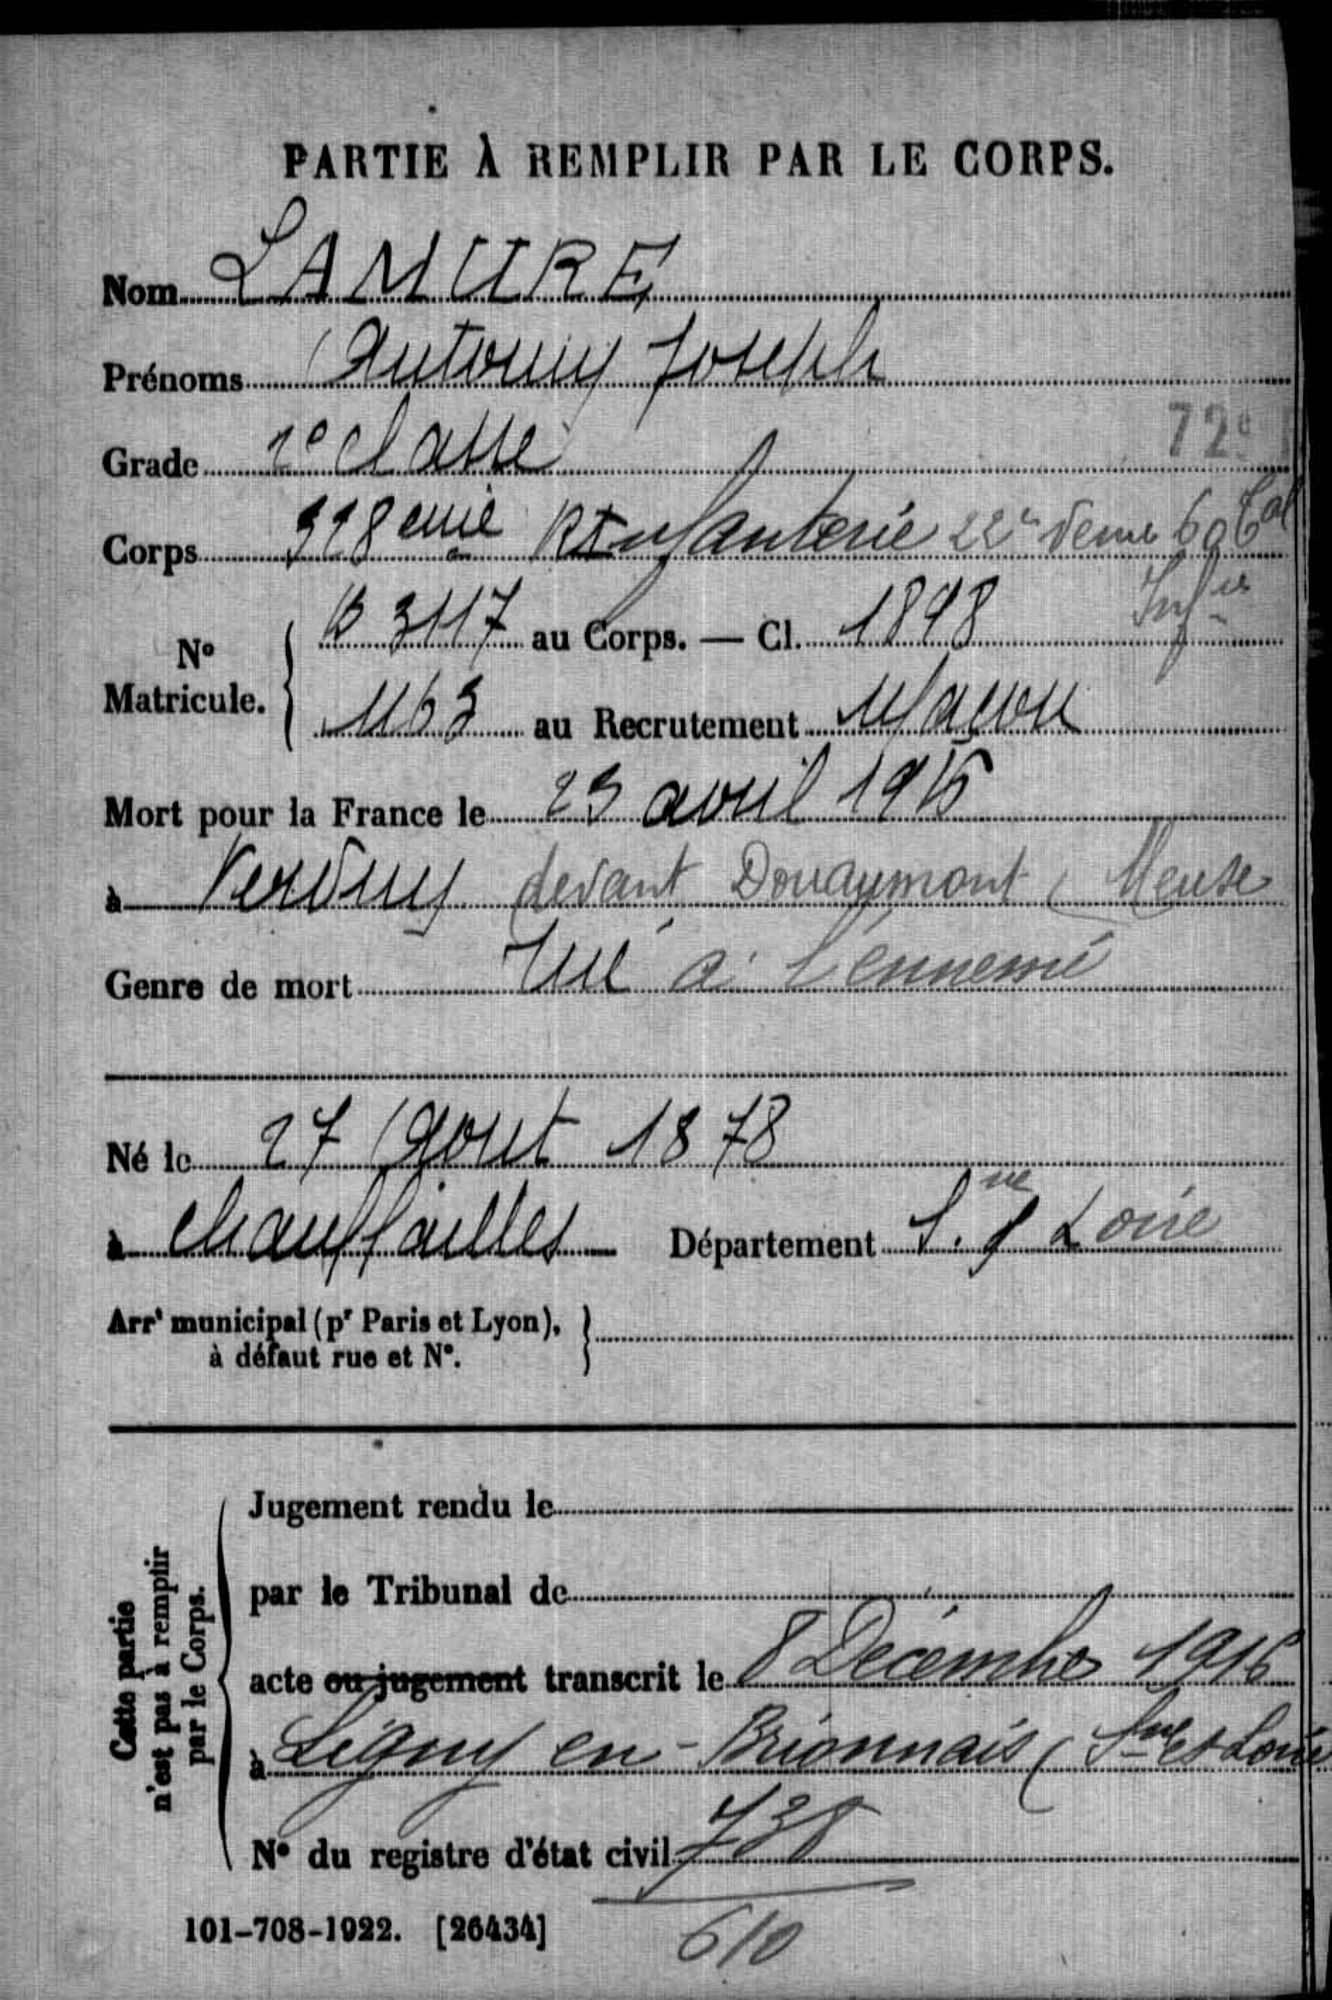 PARTIE À REMPLIR PAR LE CORPS.
Nom LAMURE
Prénoms Antony Joseph
Grade 2e classe
72e
Corps eme RInfanterie 22e
Infie
No Matricule. 3117 au Corps. — Cl. 1898
1163 au Recrutement Macon
Mort pour la France le 23 avril 1916
à Verdun devant Douaumont (Meuse
Genre de mort Tué à l'ennemi
Né le 27 Aout 1878
à Chauffailles Département S. & Loire
Arrt municipal (pr Paris et Lyon),
à défaut rue et No.
Cette partie
n'est pas à remplir
par le Corps.
Jugement rendu le
par le Tribunal de
acte ou jugement transcrit le 8 Décembre 1916
à Ligny en-Brionnais (Sne et Loire
No du registre d'état civil 738
610
101-708-1922. [26434]